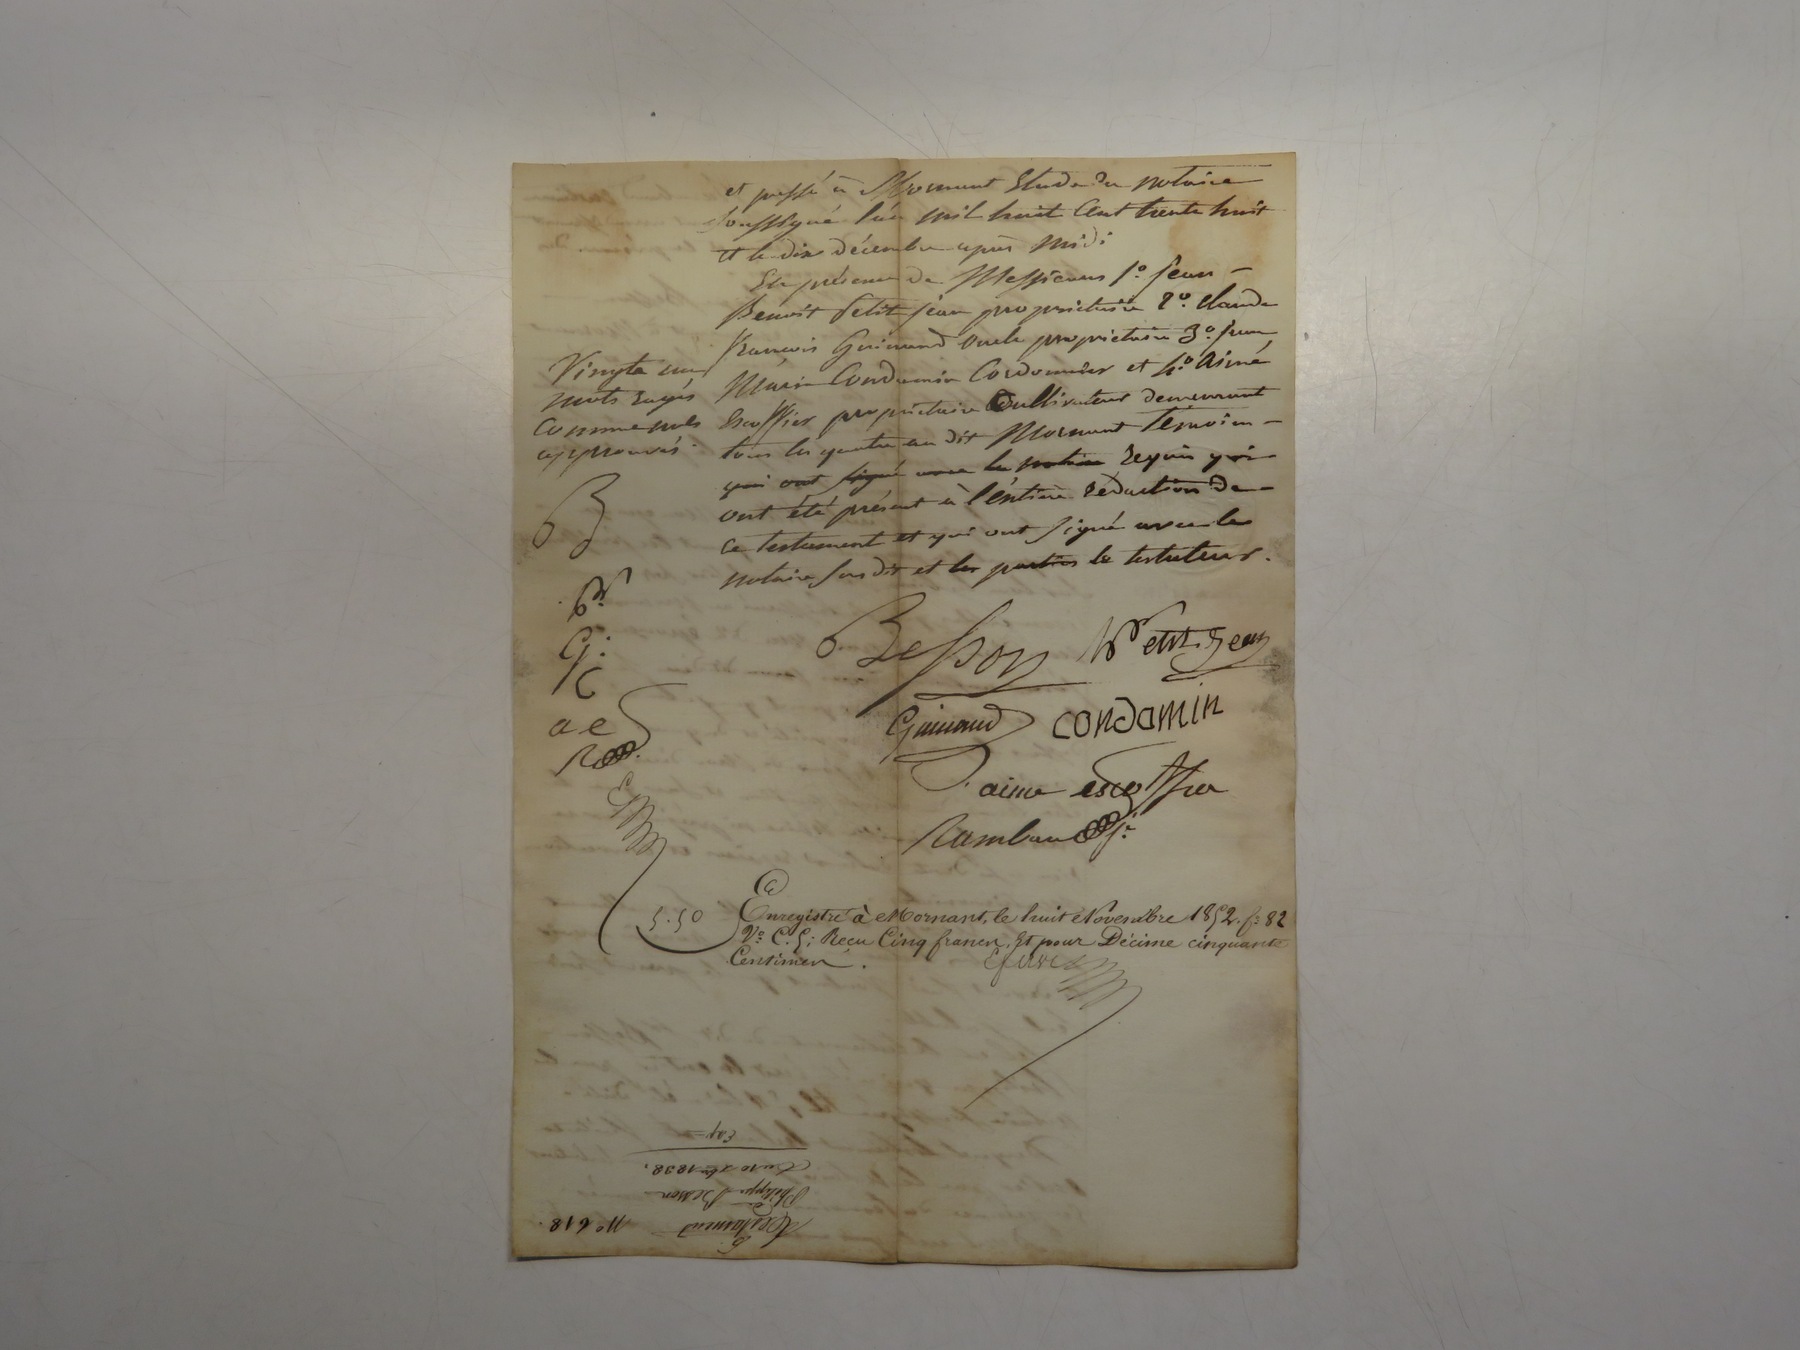 et passé à Mornant Etude du notaire
soussigné l'an mil huit cent trente huit
et le dix décembre après midi
En présence de Messieurs 1º. Jean
Benoit Petit jean propriétaire 2º. Claude
François Guinand propriétaire 3º. Jean
Marie Condamin Cordonnier et 4º. Aimé
Escoffier propriétaire Cultivateur demeurant
tous les quatre au dit Mornant témoins
qui ont signé avec le notaire requis qui
ont été présent à l'entière rédaction de
ce testament et qui ont signé avec le
notaire susdit et les parties le testateur.
Vingt un
mots rayés
comme nuls
approuvés.
B
G:
C
a e
R
Besson Petit Jean
Guinaud condamin
aimé escoffier
Rambau
5.50 Enregistré à Mornant, le huit Novembre 1852. fº 82
Vº C. 5; Reçu Cinq francs, Et pour Décime cinquante
Centimes.
Nº 618. Testament
de
Philippe Besson
Du 10 xbre 1838.
Exp